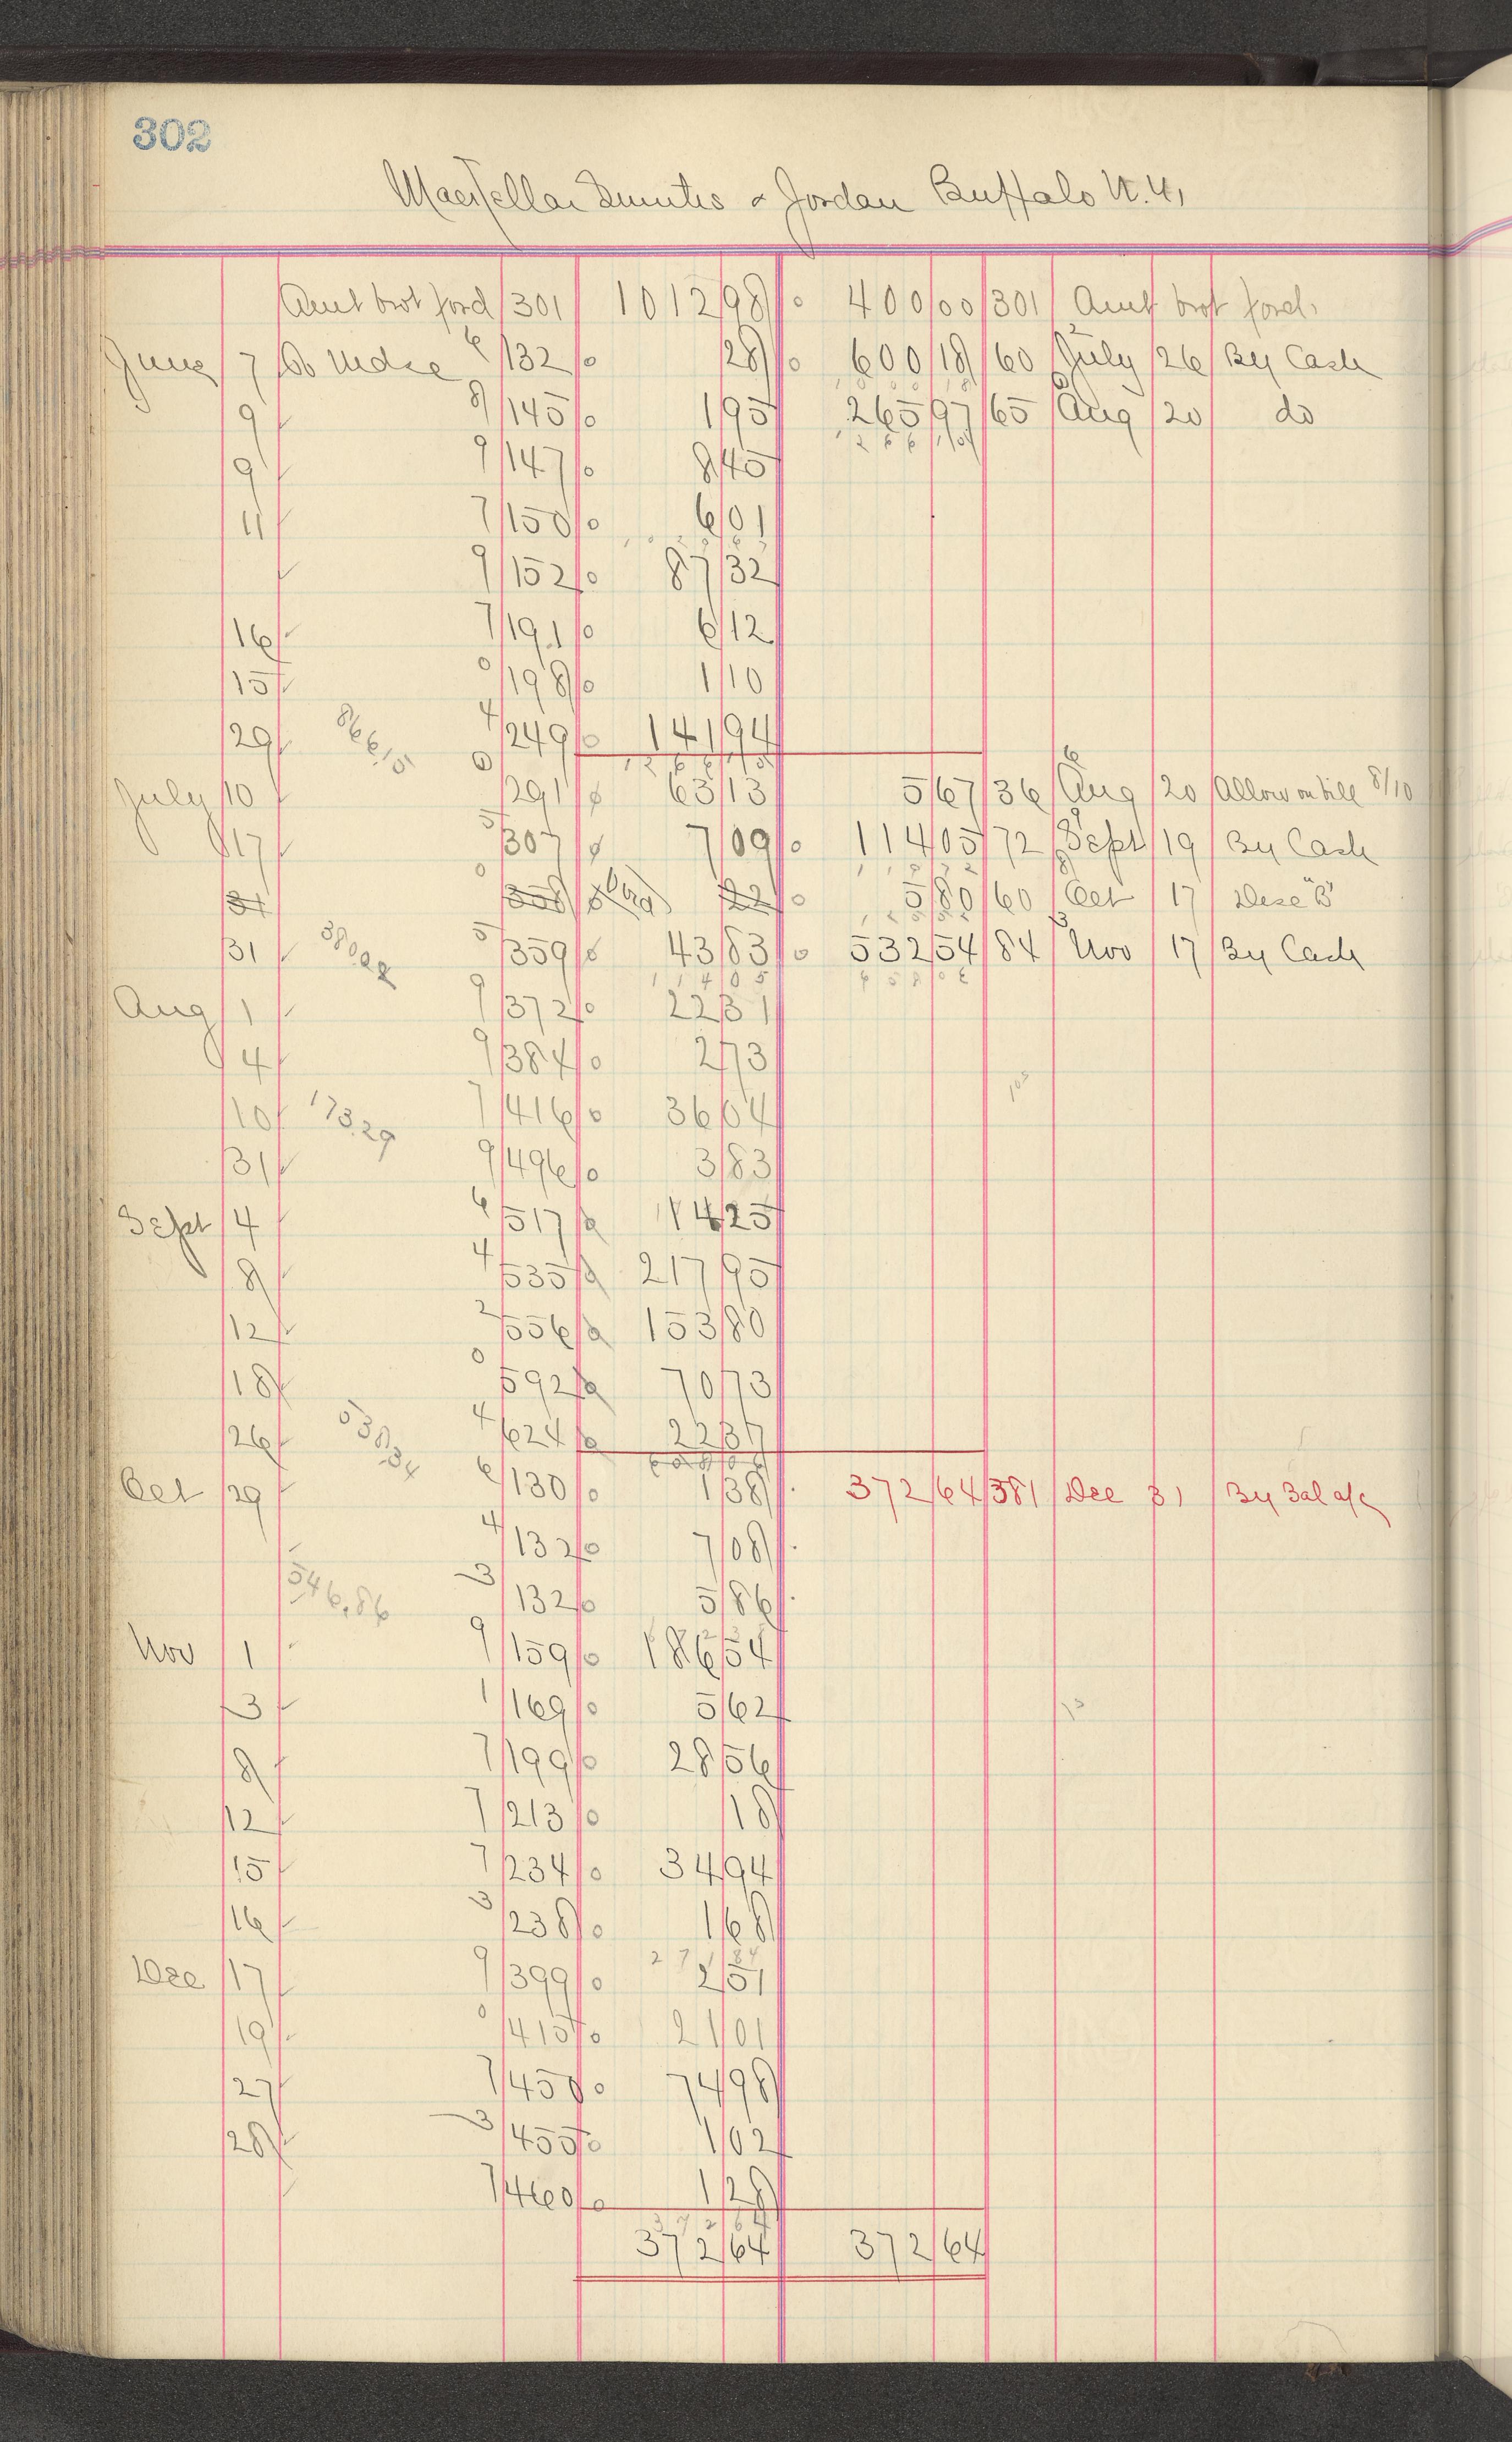 302
Jordan Buffalo N.Y.
Amt brot ford 301 1012 98 0 400 00 301 Amt brot ford.
June 7 To Mdse 6 132 0 28 0 600 18 60 July 26 By Cash
9 8 145 0 1 95 265 97 65 Aug 20 do
9 9 147 0 8 45 1 2 6 6 1 5
11 7 150 0 6 01
9 152 0 87 32
16 7 191 0 6 12
15 0 198 0 1 10
29 866.15 4 249 0 141 94
1 2 6 6 1 5
July 10 0 291 63 13 5 67 36 Aug 20 Allow on bill 8/10
17 5 307 7 09 0 114 05 72 Sept 19 By Cash
31 0 358 22 0 5 80 60 Oct 17 Disc "B"
31 380.22 5 359 43 83 0 532 54 84 Nov 17 By Cash
1 1 4 0 5
Aug 1 9 372 0 22 31
4 9 384 0 2 73
10 173.29 7 416 0 36 04
31 9 496 0 3 83
Sept 4 6 517 14 25
8 4 535 217 95
12 2 556 153 80
18 0 592 70 73
26 538.34 4 624 22 37
Oct 29 6 130 0 1 38 372 64 381 Dec 31 By Bal a/c
4 132 0 7 08
546.86 3 132 0 5 86
Nov 1 9 159 0 186 54
3 1 169 0 5 62
8 7 199 0 28 56
12 7 213 0 18
15 7 234 0 34 94
16 3 238 0 1 68
2 7 1 8 4
Dec 17 9 399 0 2 51
19 0 415 0 21 01
27 7 450 0 74 98
28 3 455 0 1 02
7 460 0 1 28
3 7 2 6 4
372 64 372 64